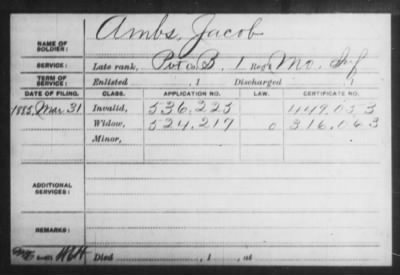 Ambs, Jacob
NAME OF SOLDIER:
SERVICE: Late rank, Pvt Co. B, 1 Reg't Mo. Inf
TERM OF SERVICE: Enlisted , 1 Discharged , 1
DATE OF FILING. CLASS. APPLICATION NO. LAW. CERTIFICATE NO.
1885, Mar. 31 Invalid, 536.225 449.053
Widow, 524.217 316.063
Minor,
ADDITIONAL SERVICES:
REMARKS:
Died , 1 , at